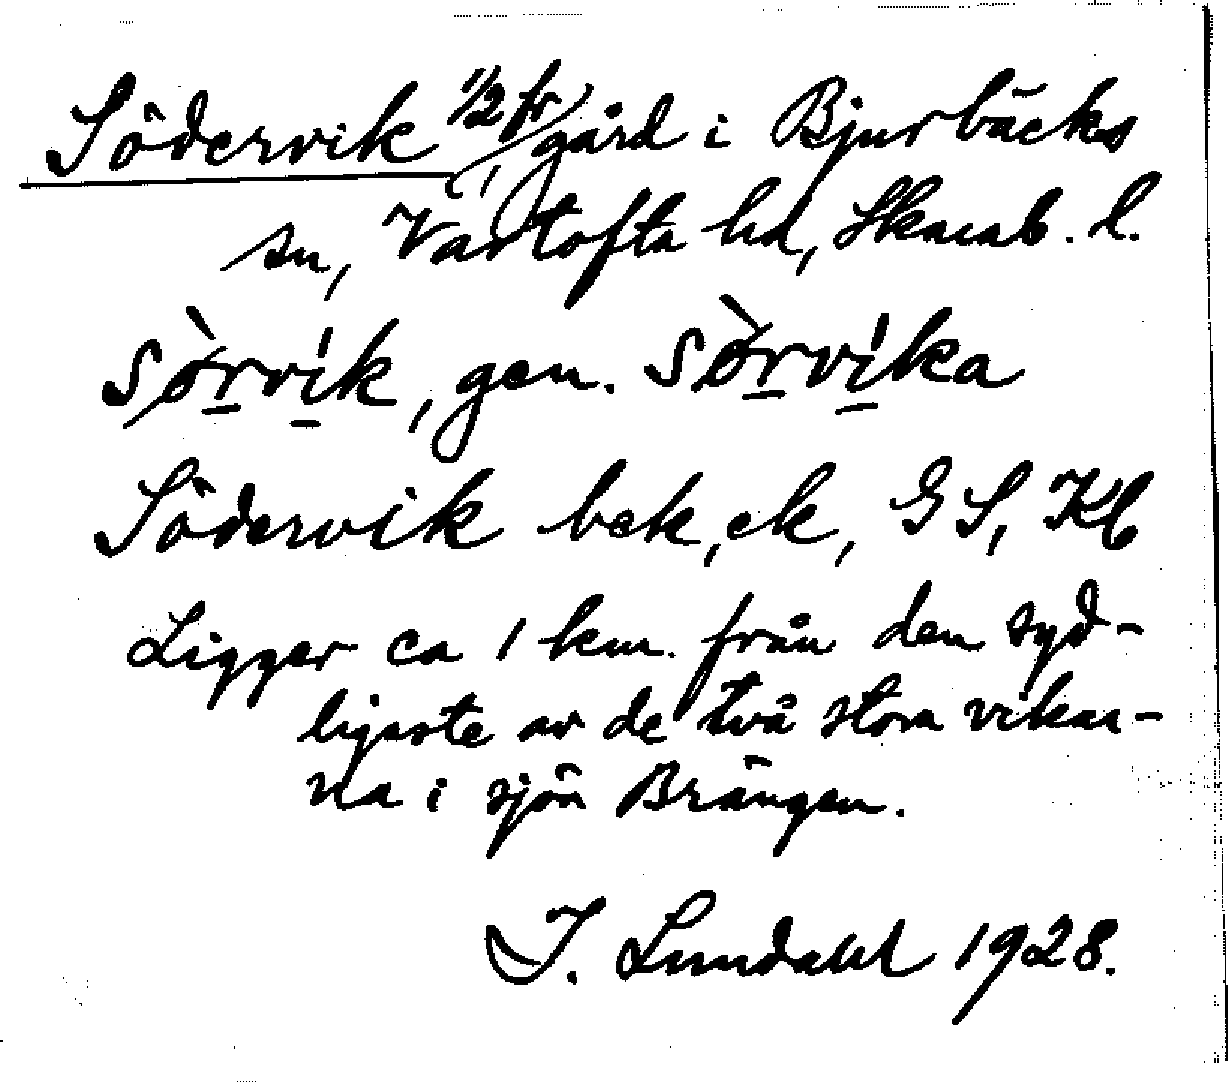 Södervik 1/2 fr gård i Bjurbäcks
sn, Vartofta hd, Skarab. l.
sò̱rvi̱k, gen. sò̱rvi̱ka
Södervik bek, ek, GS, Kb
Ligger ca 1 km. från den syd-
ligaste av de två stora vikar-
na i sjön Brängen.
I. Lundahl 1928.